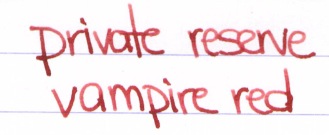 private reserve
vampire red